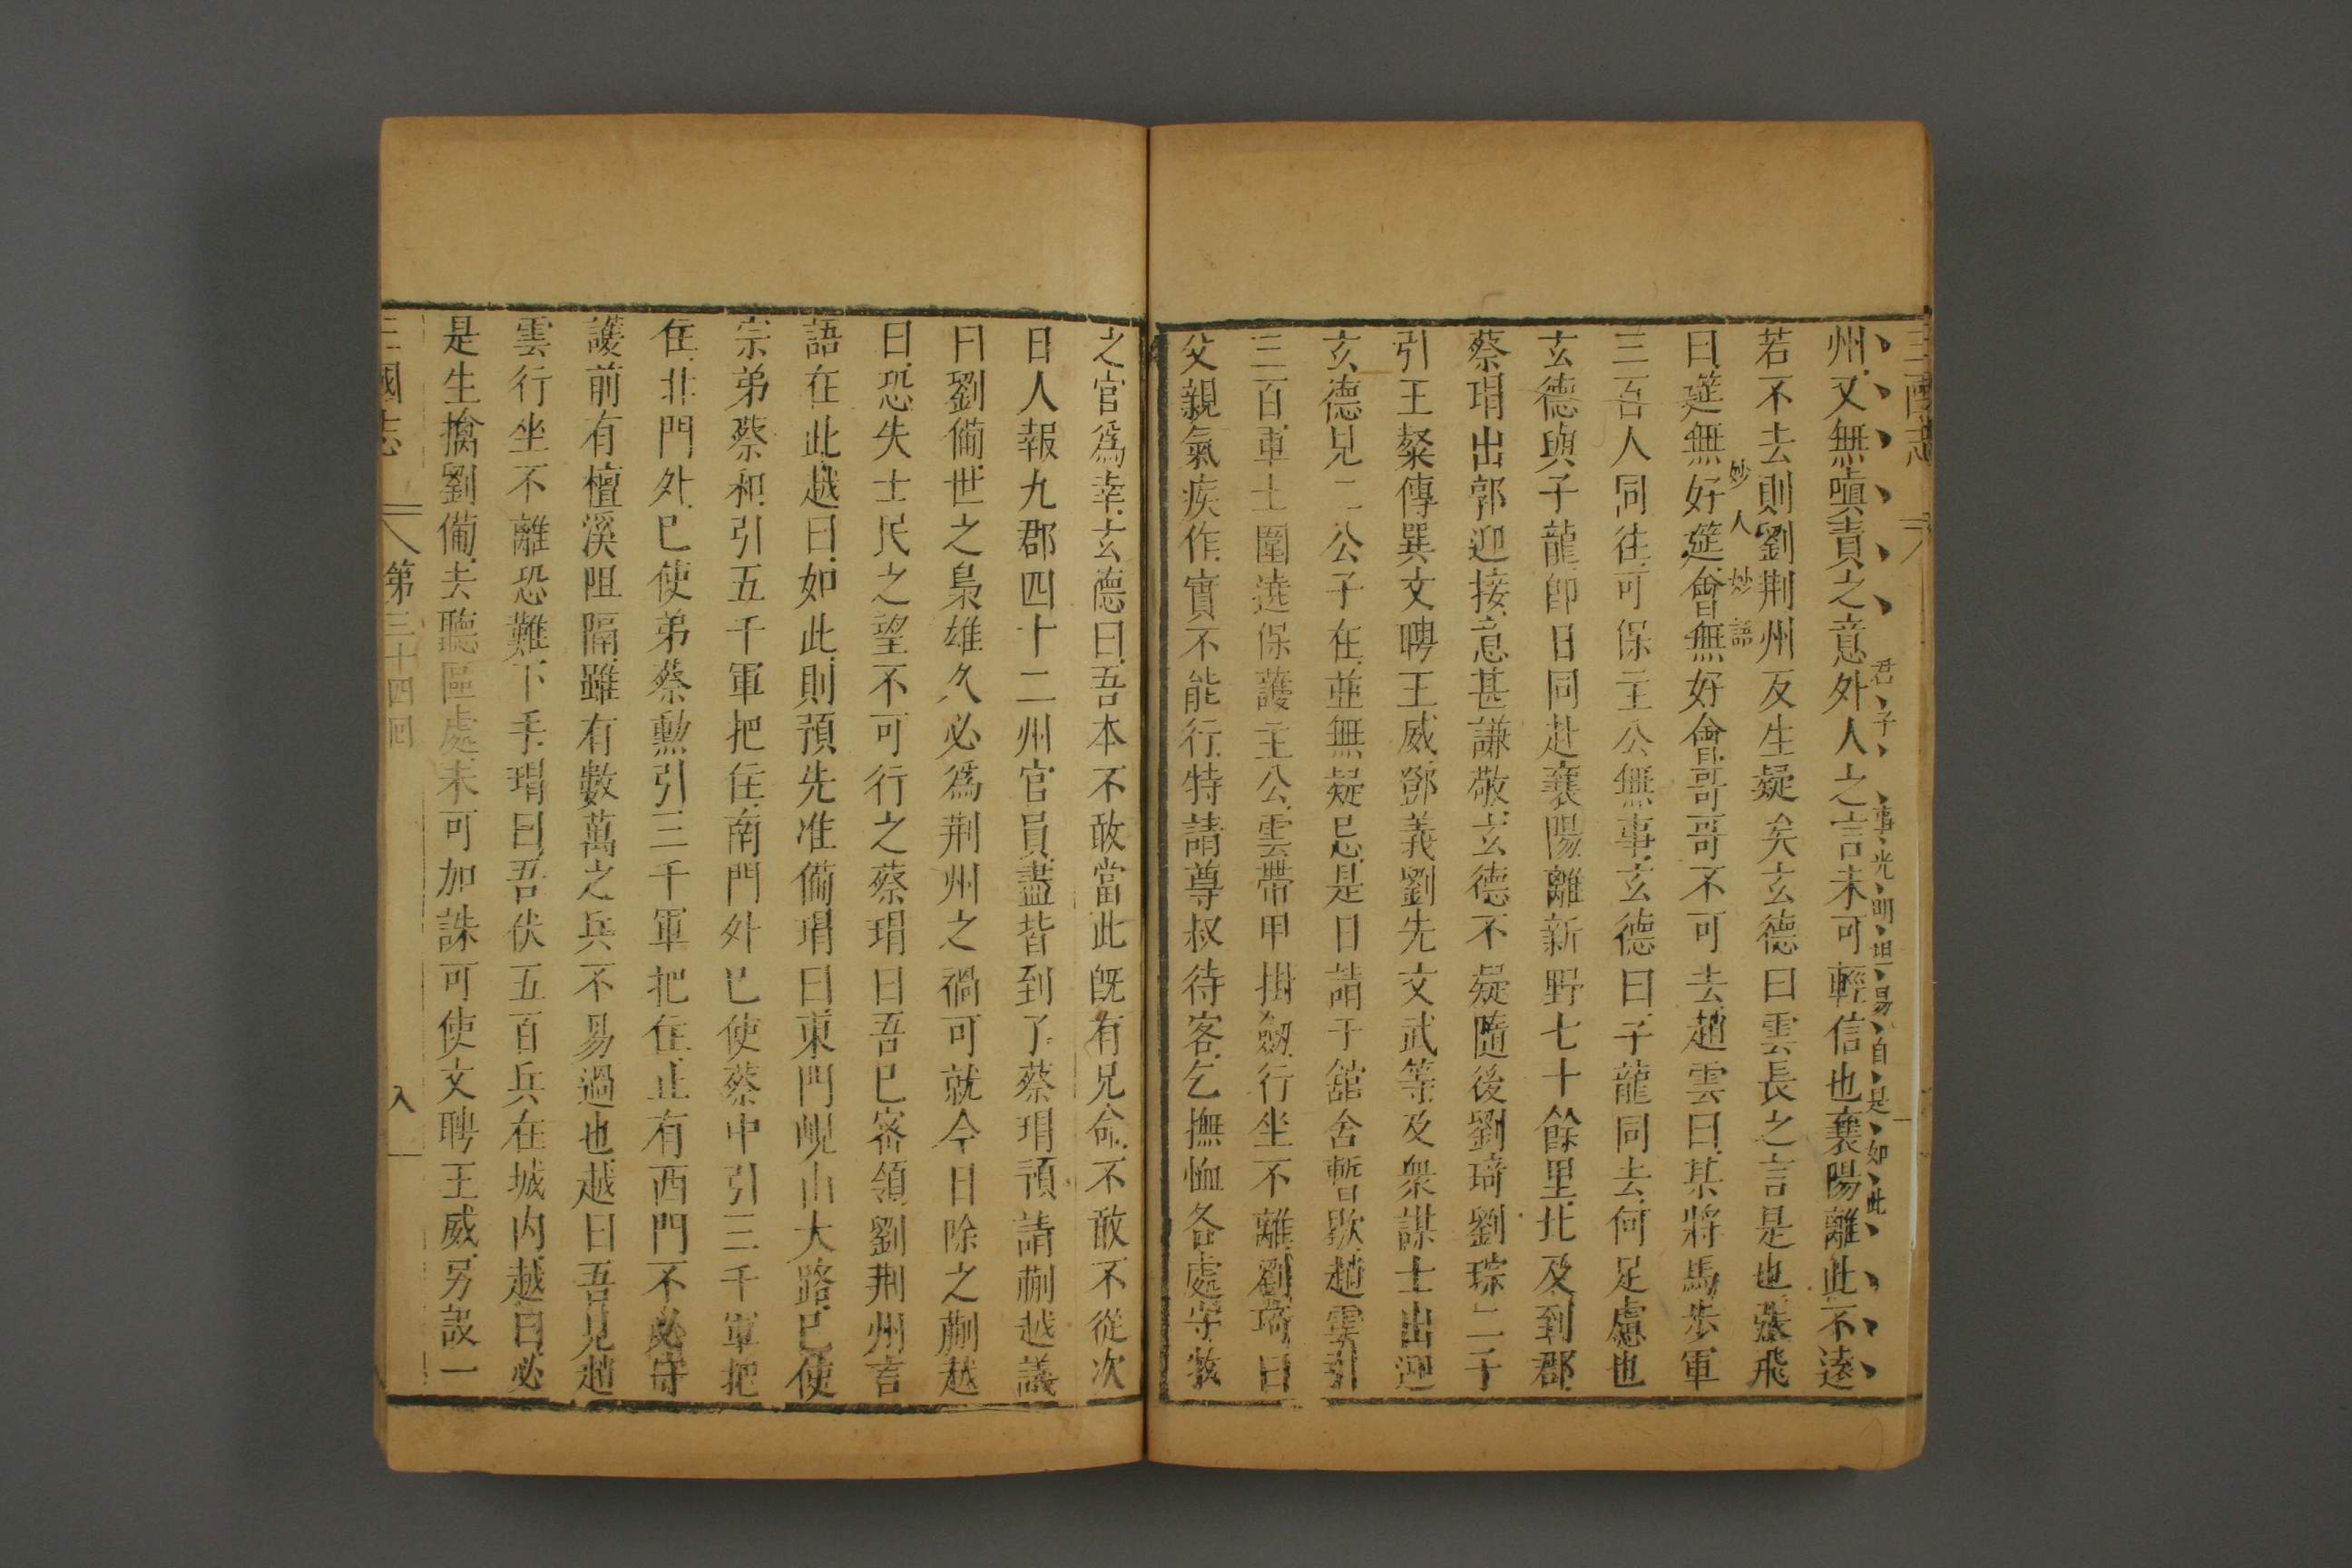 三國志
君子事光明坦易自是如此
州又無嗔責之意外人之言未可輕信也襄陽離此不遠
若不去則劉荆州反生疑矣玄德曰雲長之言是也張飛
妙人妙語
曰筵無好筵會無好會哥哥不可去趙雲曰某將馬步軍
三百人同往可保主公無事玄德曰子龍同去何足慮也
玄德與子龍即日同赴襄陽離新野七十餘里比及到郡
蔡瑁出郭迎接意甚謙敬玄德不疑隨後劉琦劉琮二子
引王粲傅巽文聘王威鄧義劉先文武等及衆謀士出迎
玄德見二公子在並無疑忌是日請于舘舍暫歇趙雲引
三百軍士圍遶保護主公雲帶甲掛劔行坐不離劉琦曰
父親氣疾作實不能行特請尊叔待客乞撫恤各處守牧
之官爲幸玄德曰吾本不敢當此既有兄命不敢不從次
日人報九郡四十二州官員盡皆到了蔡瑁預請蒯越議
曰劉備世之梟雄久必爲荆州之禍可就今日除之蒯越
曰恐失士民之望不可行之蔡瑁曰吾已密領劉荆州言
語在此越曰如此則預先准備瑁曰東門峴山大路已使
宗弟蔡和引五千軍把住南門外已使蔡中引三千軍把
住北門外已使弟蔡勲引三千軍把住止有西門不必守
護前有檀溪阻隔雖有數萬之兵不易過也越曰吾見趙
雲行坐不離恐難下手瑁曰吾伏五百兵在城内越曰必
是生擒劉備去聽區處未可加誅可使文聘王威另設一
三國志 第三十四回 八